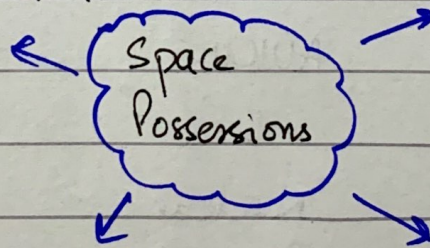 Space
Possessions